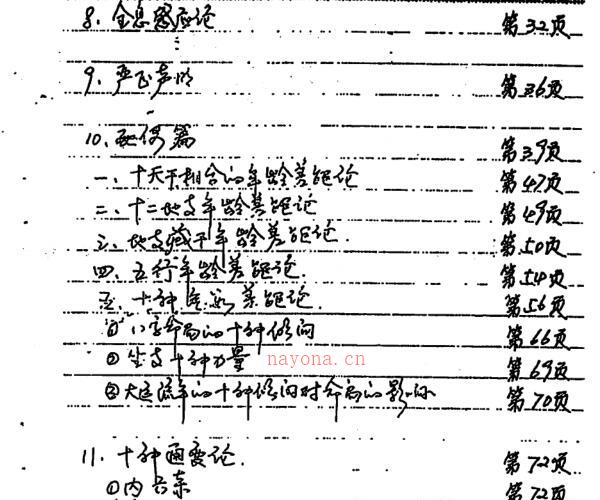 8、全息感应论 第32页
9、严正声明 第36页
10、配偶篇 第39页
一、十天干相合的年龄差距论 第47页
二、十二地支年龄差距论 第49页
三、地支藏干年龄差距论. 第50页
四、五行年龄差距论. 第54页
五、十种 差距论. 第56页
八字命局的十种倾向 第66页
①生支十种力量 第69页
nayona.cn
②大运流年的十种倾向对命局的影响 第70页
11、十种通变论. 第72页
①内六亲 第72页